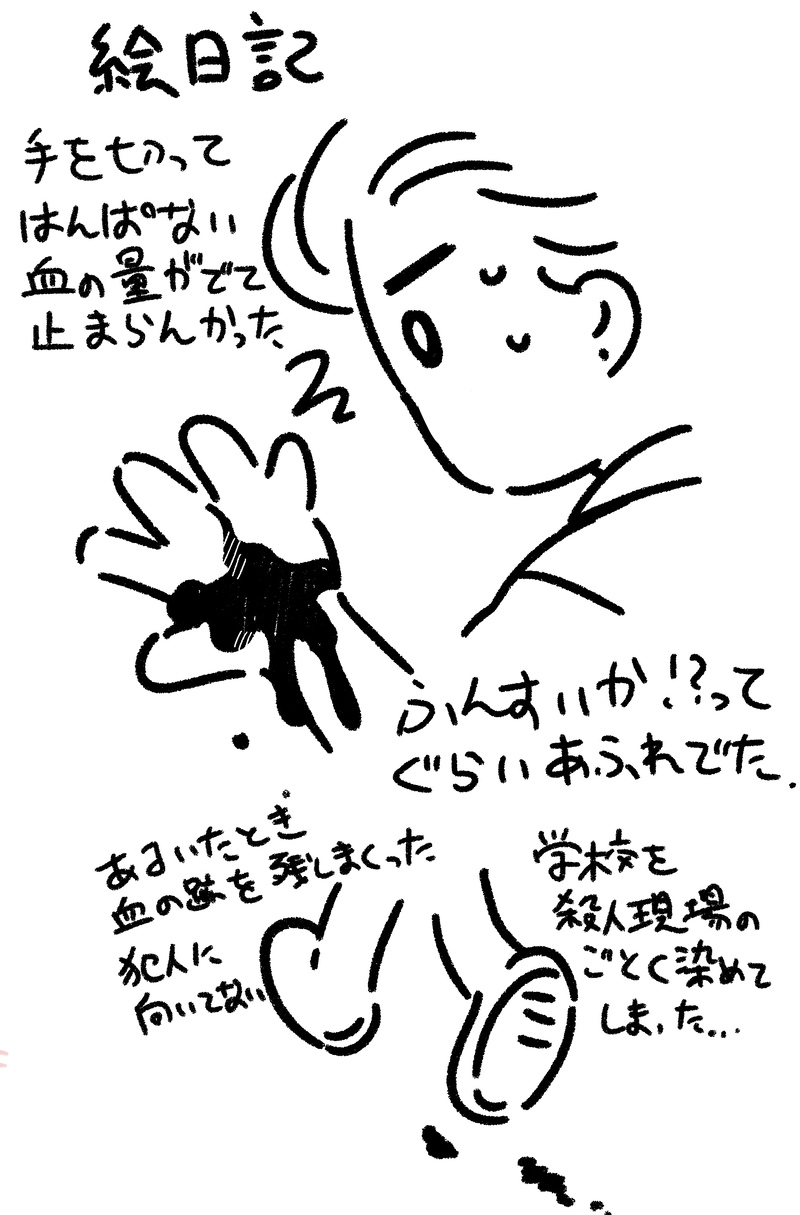 絵日記
手を切って
はんぱない
血の量がでて
止まらんかった
ふんすいか!?って
ぐらいあふれでた.
あるいたとき
血の跡を残しまくった
犯人に
向いてない
学校を
殺人現場の
ごとく染めて
しまった...